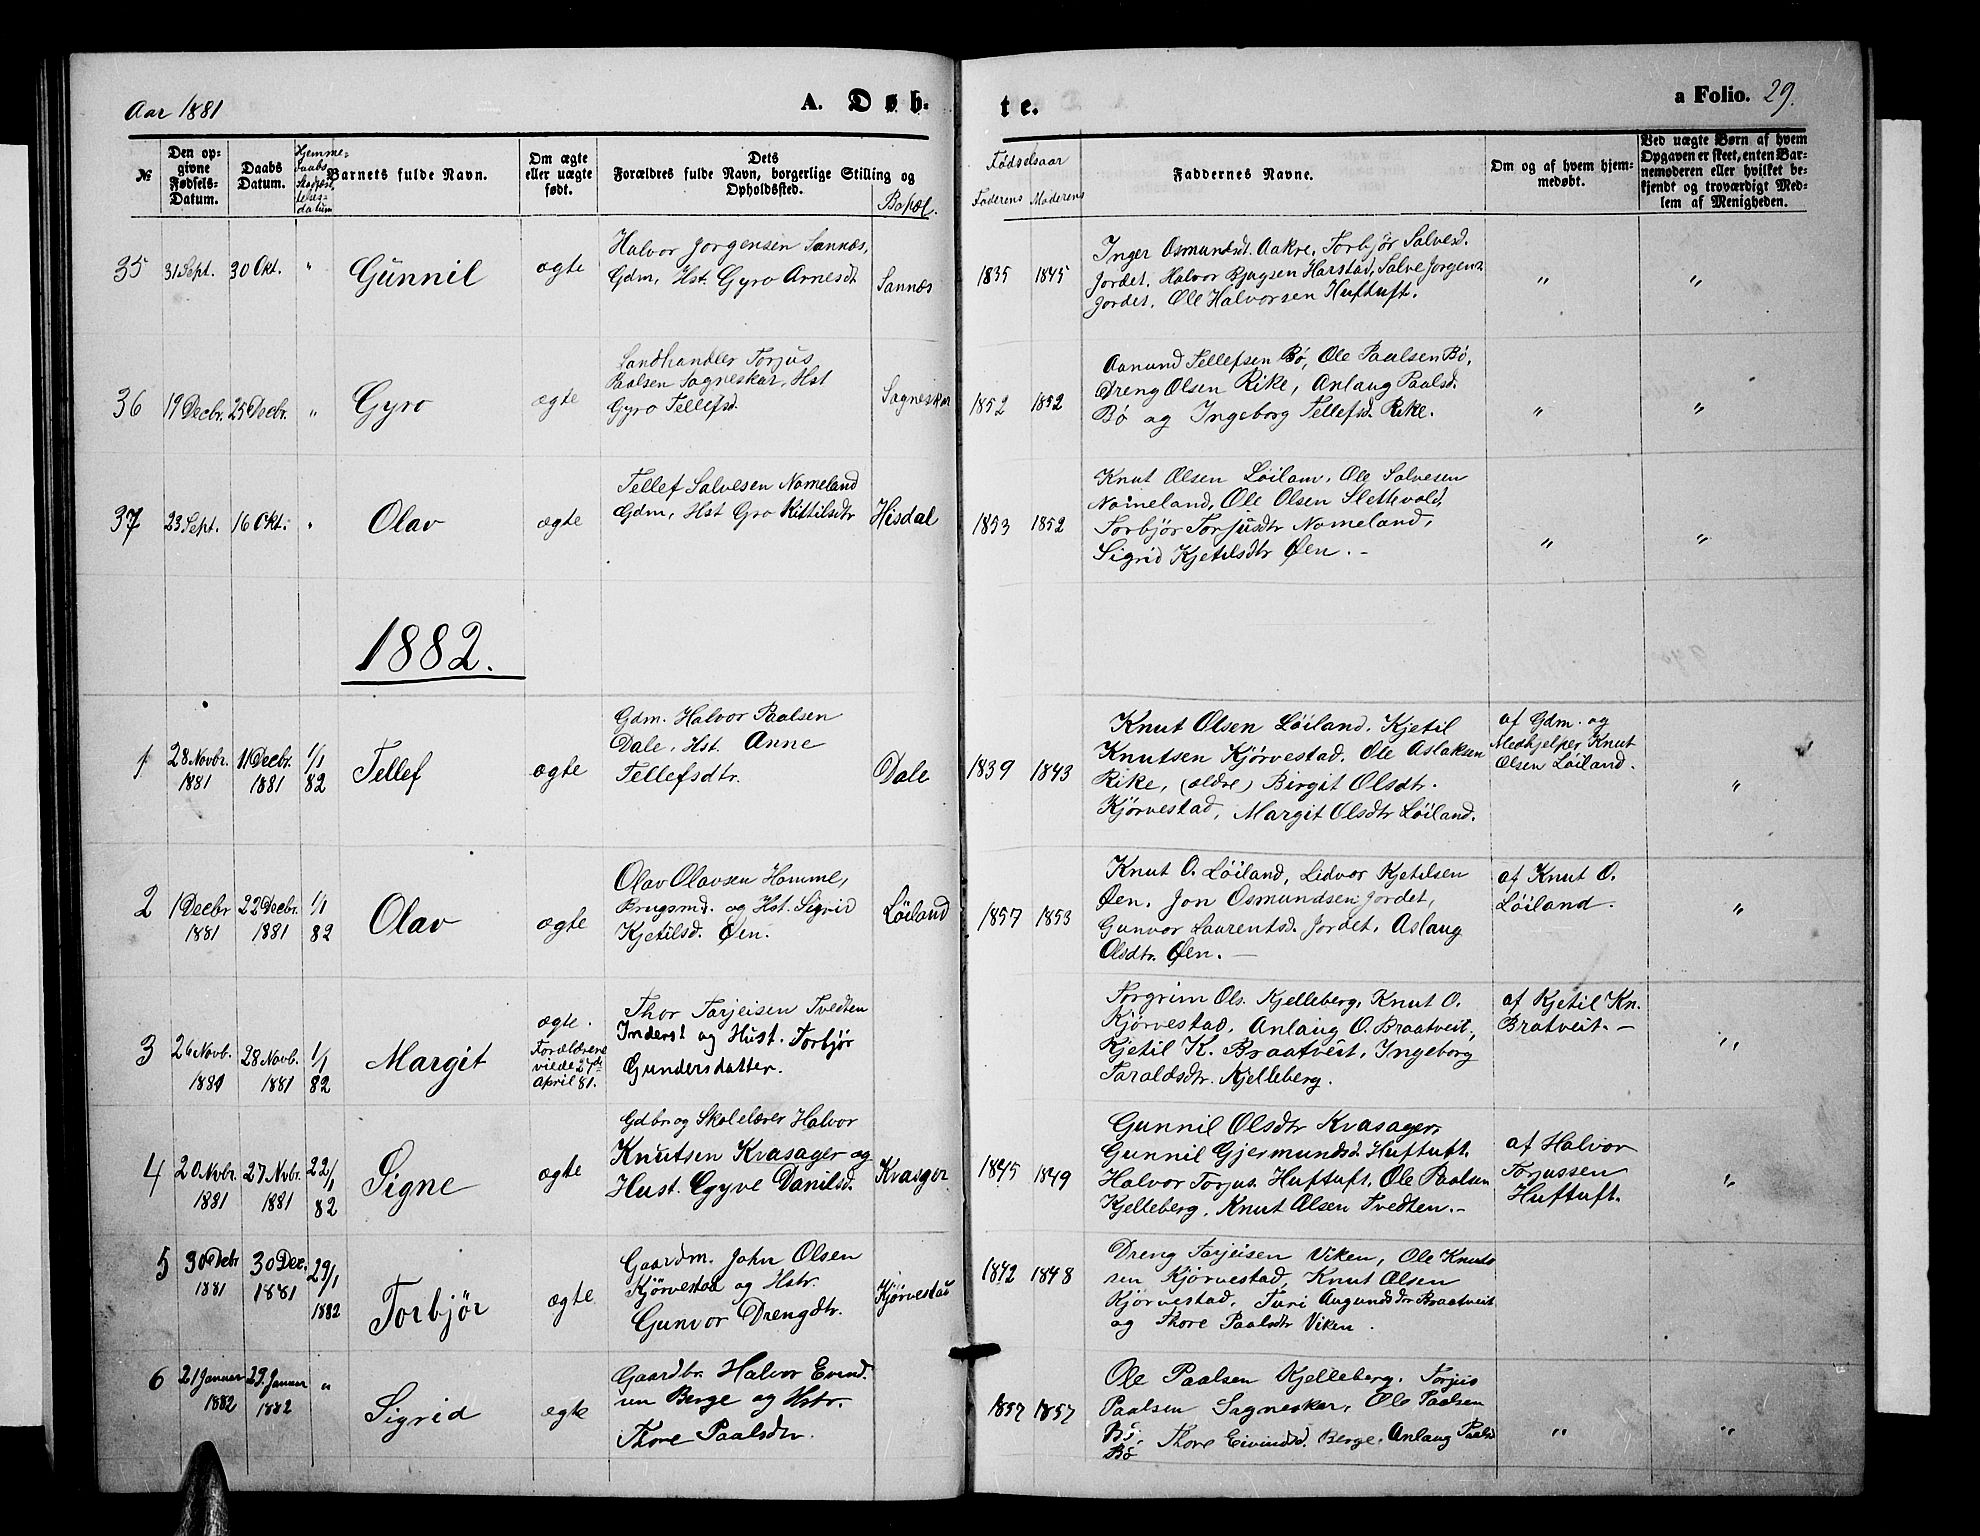 Aar 1881
A. Døb-
te.
a Folio. 29.
№
Den op-
givne
Fødsels-
Datum.
Daabs
Datum.
Hjemme-
daabs
Stadfæs-
telses-
datum
Barnets fulde Navn.
Om ægte
eller uægte
født.
Dets
Forældres fulde Navn, borgerlige Stilling og
Opholdssted.
Bopæl.
Fødselsaar
Faderens Moderens
Faddernes Navne.
Om og af hvem hjem-
medøbt.
Ved uægte Børn af hvem
Opgaven er skeet, enten Bar-
nemoderen eller hvilket be-
kjendt og troværdigt Med-
lem af Menigheden.
35 31 Sept. 30 Okt. " Gunnil ægte
Halvor Jorgensen Sannæs,
Gdm, Hst. Gyro Arnesdt
Sannæs
1835 1845
Inger Osmundsdt. Aakre, Torbjør Salvesd.
Jordet. Halvor Bjugsen Harstad, Salve Jorgens.
Jordet. Ole Halvorsen Huftuft.
" "
36 19 Decbr. 25 Decbr. " Gyro ægte
Landhandler Torjus
Paalsen Sagneskar, Hst
Gyro Tellefsd.
Sagneskar
1852 1852
Aanund Tellefsen Bø, Ole Paalsen Bø,
Dreng Olsen Rike, Anlaug Paalsd.
Bø og Ingeborg Tellefsd. Rike.
" "
37 23 Sept. 16 Okt. " Olav ægte
Tellef Salvesen Nomeland
Gdm, Hst Gro Kittilsdtr
Hisdal
1853 1852
Knut Olsen Løilam, Ole Salvesen
Nomeland, Ole Olsen Slettevold,
Torbjør Torjusdtr Nomeland,
Sigrid Kjetilsdtr Øen. -
" "
1882.
1 28 Novbr. 11 Decbr. 1/1
1881 1881 82
Tellef ægte
Gdm. Halvor Paalsen
Dale, Hst. Anne
Tellefsdtr.
Dale
1839 1843
Knut Olsen Løiland. Kjetil
Knutsen Kjørvestad. Ole Aslaksen
Rike, (ældre) Birgit Olsdtr.
Kjørvestad, Margit Olsdtr Løiland.
af Gdm. og
Medhjelper Knut
Olsen Løiland.
"
2 1 Decbr 22 Decbr. 1/1
1881 1881 82
Olav ægte
Olav Olavsen Homme,
Brugsmd. og Hst. Sigrid
Kjetilsd. Øen.
Løiland
1857 1853
Knut O. Løiland, Lidvor Kjetilsen
Øen. Jon Osmundsen Jordet,
Gunvor Laurentsd. Jordet, Aslaug
Olsdtr. Øen. -
af Knut O.
Løiland.
"
3 26 Novb. 28 Novb. 1/1
1881 1881 82
Margit
ægte.
Forældrene
viede 27de
April 81.
Thor Tarjeisen Tvedten
Inderst og Hust. Torbjør
Gundersdatter.
Torgrim Ols. Kjelleberg, Knut O.
Kjørvestad, Anlaug O. Braatveit,
Kjetil K. Braatveit, Ingeborg
Taraldsdtr. Kjelleberg.
af Kjetil Kn.
Bratveit. -
"
4 20 Nvbr. 27 Nvbr. 22/1
1881 1881 82
Signe ægte
Gdbr og Skolelærer Halvor
Knutsen Kvasager og
Hust. Gyve Danilsd.
Kvasger
1845 1849
Gunnil Olsdtr Kvasager,
Gunnil Gjermundsd. Huftuft.
Halvor Torjus. Huftuft, Ole Paalsen
Kjelleberg, Knut Olsen Tvedten. -
af Halvor
Torjussen
Huftuft.
"
5 30 Decbr 30 Dec. 29/1
1881 1881 1882
Torbjør ægte
Gaardm. John Olsen
Kjørvestad og Hstr.
Gunvor Drengdtr.
Kjørvestad
1842 1848
Dreng Tarjeisen Viken, Ole Knuts
sen Kjørvestad, Knut Olsen
Kjørvestad, Turi Augundsdtr Braatveit
og Thore Paalsdtr Viken.
6 21 Januar 29. Januar "
1882 1882
Sigrid ægte
Gaardbr. Halvor Evind.
sen Berge og Hstr.
Thore Paalsdtr.
1857 1857
Ole Paalsen Kjelleberg. Torjus
Paalsen Sagneskar, Ole Paalsen
Bø, Thore Eivindsd. Berge, Anlaug Paalsd
Bø
" "